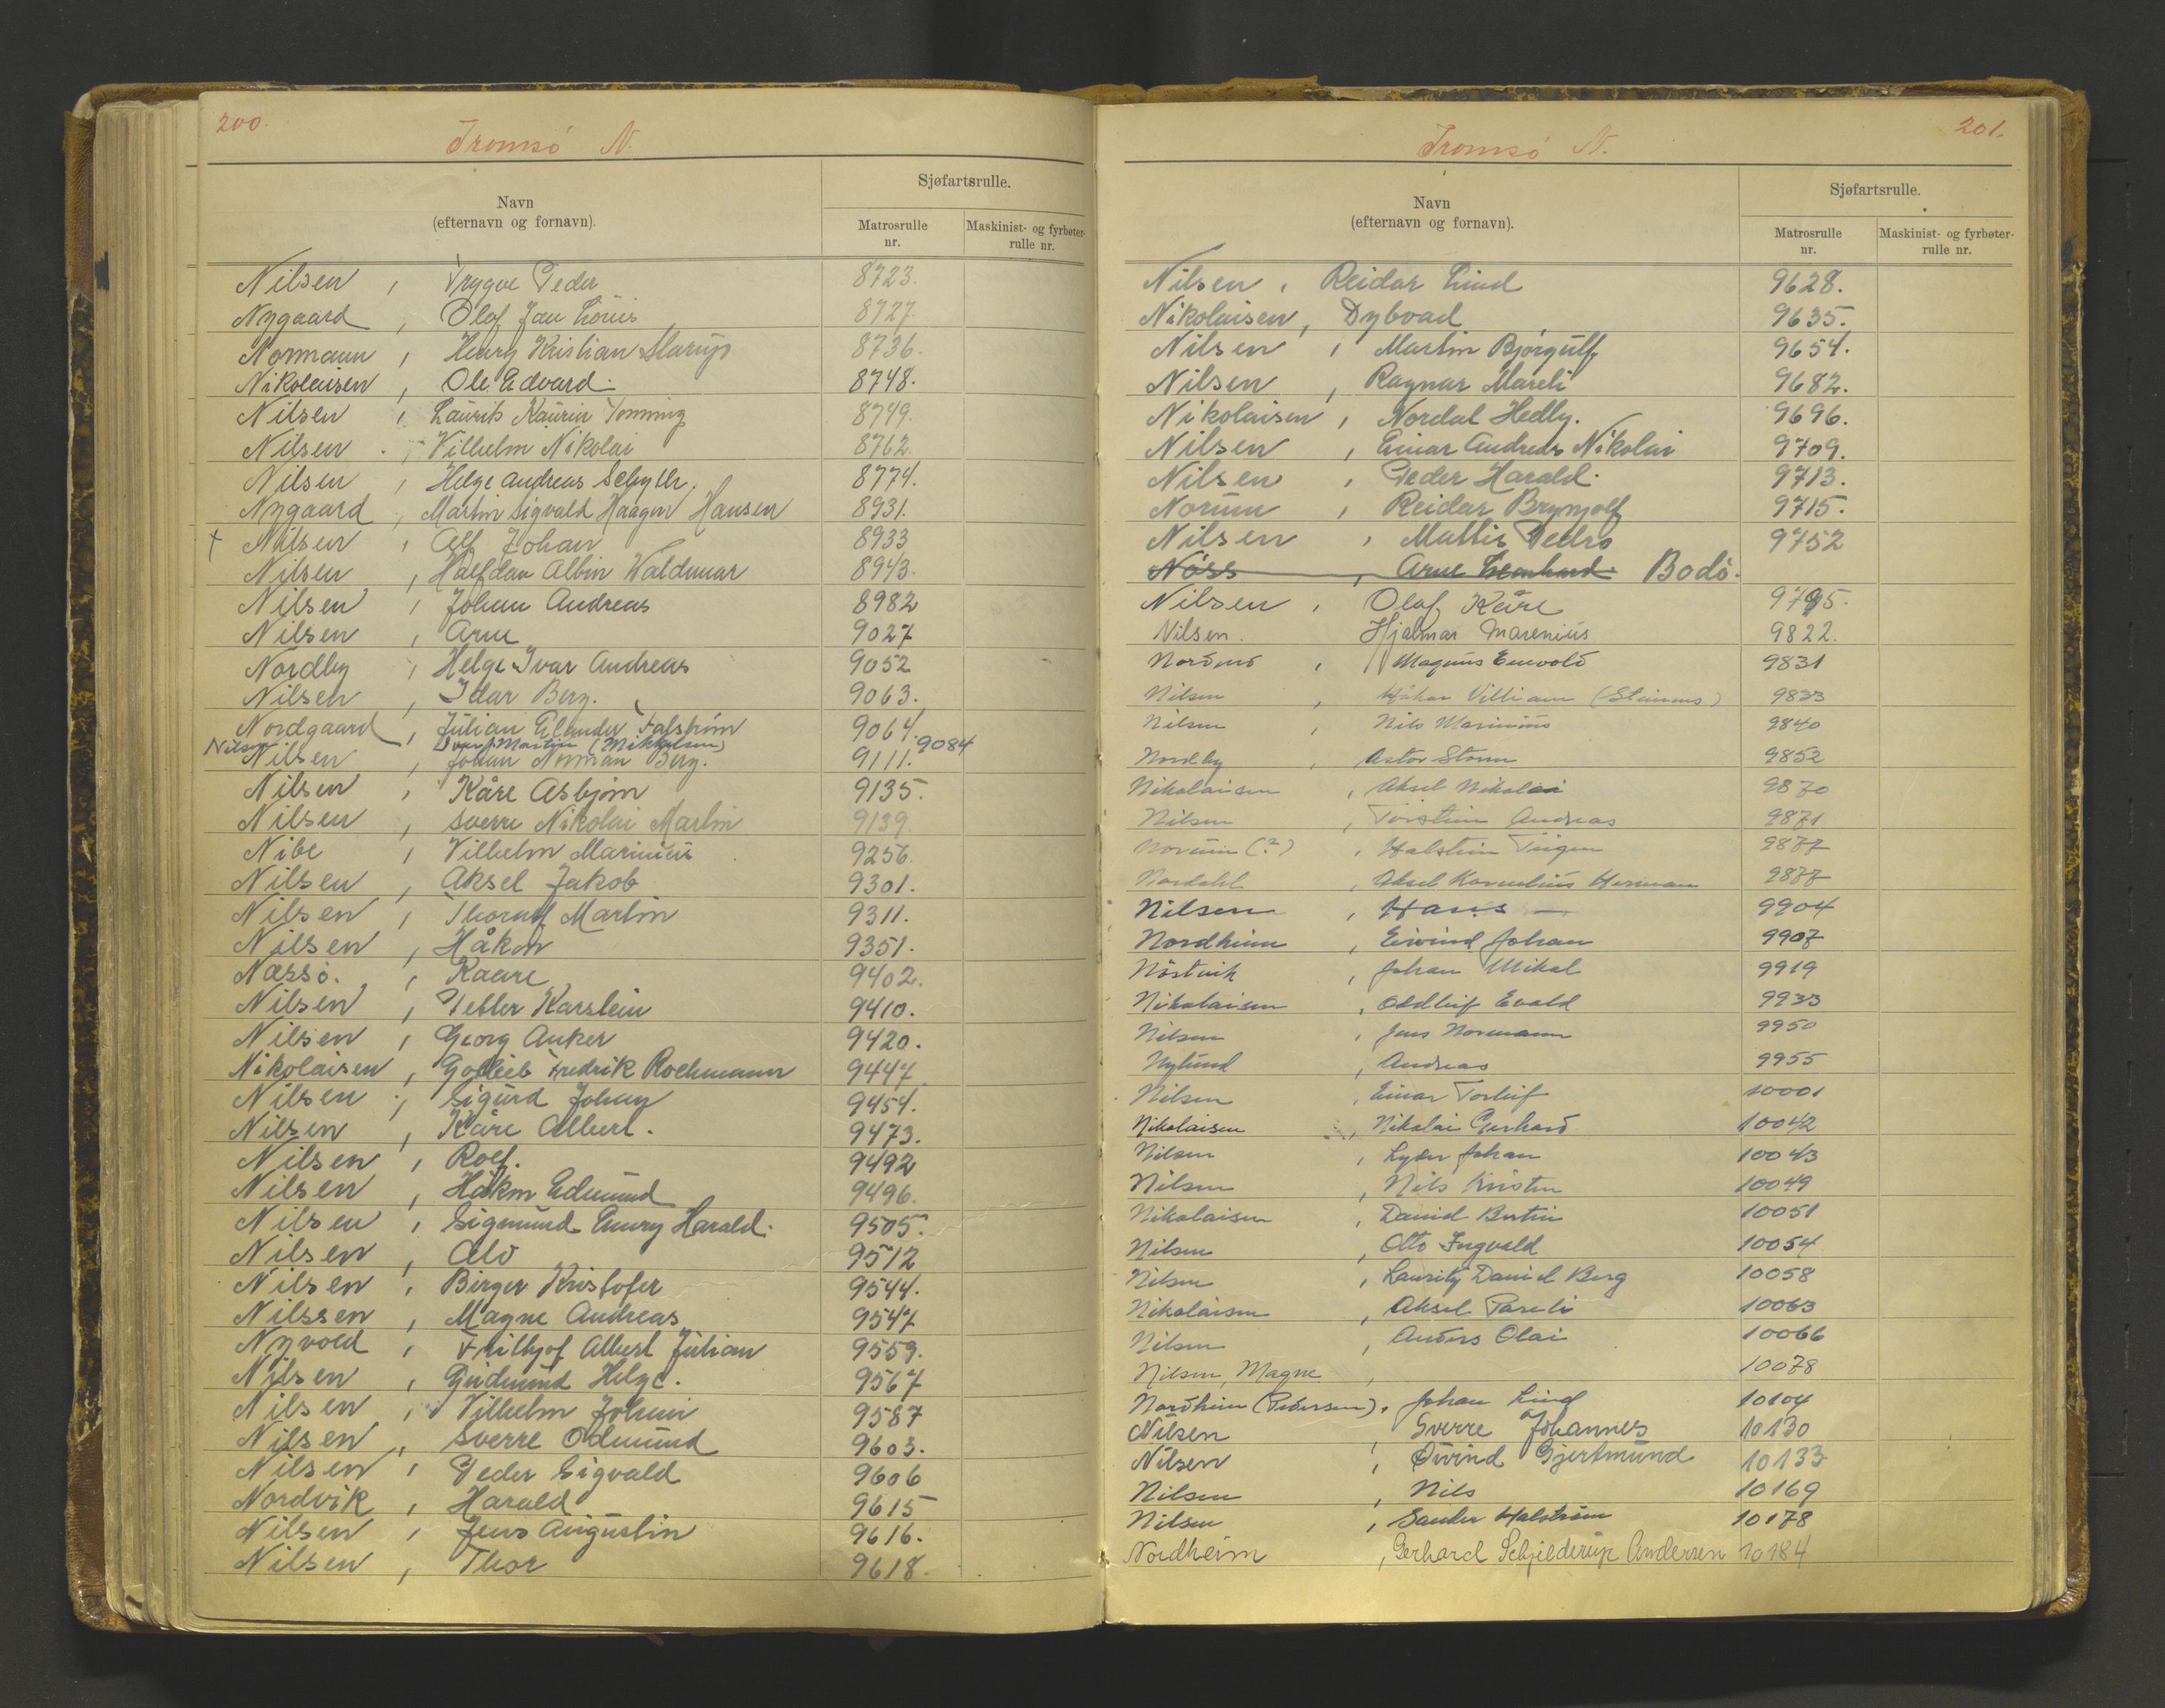 200.
Tromsö N.
Navn
(efternavn og fornavn).
Sjøfartsrulle.
Matrosrulle
nr.
Maskinist- og fyrbøter-
rulle nr.
Nilsen , Trygve Peder 8723.
Nygaard , Olaf Jan Louis 8727.
Normann , Henry Kristian Starup 8736.
Nikolaisen , Ole Edvard. 8748.
Nilsen , Laurits Kaurin Tonning 8749.
Nilsen , Vilhelm Nikolai 8762.
Nilsen , Helge Andreas Schytte. 8774.
Nygaard , Martin Sigvald Haagen Hansen 8931.
+ Nilsen , Alf Johan 8933
Nilsen , Halfdan Albin Waldemar 8943.
Nilsen , Johan Andreas 8982
Nilsen , Arne 9027
Nordby , Helge Ivar Andreas 9052
Nilsen , Idar Berg. 9063.
Nordgaard , Julian Elander Falstrøm 9064.
Nilsen Martin (Mikkelsen) 9084
Nilsen , Johan Norman Berg. 9111.
Nilsen , Kåre Asbjörn 9135.
Nilsen , Sverre Nikolai Martin 9139.
Nibe , Vilhelm Marinius 9256.
Nilsen , Aksel Jakob 9301.
Nilsen , Thoralf Martin 9311.
Nilsen , Håkon 9351.
Næssø. , Kaare 9402.
Nilsen , Petter Karstein 9410.
Nilsen , Georg Anker 9420.
Nikolaisen , Gotlieb Fredrik Rochmann 9447
Nilsen , Sigurd Johan 9454.
Nilsen , Kåre Albert. 9473.
Nilsen , Rolf. 9492
Nilsen , Håkon Edmund 9496.
Nilsen , Sigmund Emry Harald. 9505.
Nilsen , Alv 9512
Nilsen , Birger Kristofer 9544.
Nilssen , Magne Andreas 9547
Nyvold , Frithjof Albert Julian 9559.
Nilsen , Gudmund Helge. 9567
Nilsen , Vilhelm Johan 9587
Nilsen , Sverre Odmund 9603.
Nilsen , Peder Sigvald 9606
Nordvik , Harald 9615
Nilsen , Jens Augustin 9616.
Nilsen , Thor 9618.
201.
Tromsö N.
Navn
(efternavn og fornavn).
Sjøfartsrulle.
Matrosrulle
nr.
Maskinist- og fyrbøter-
rulle nr.
Nilsen , Reidar Lind 9628.
Nikolaisen , Dybvad 9635.
Nilsen , Martin Bjørgulf 9654.
Nilsen , Ragnar Mareli 9682.
Nikolaisen , Nordal Hedly. 9696.
Nilsen , Einar Andreas Nikolai 9709.
Nilsen , Peder Harald. 9713.
Norum , Reidar Brynjolf 9715.
Nilsen , Mattis Pedro 9752
Nöss , Arne Leonhard. Bodö.
Nilsen , Olaf Kåre 9795.
Nilsen. Hjalmar Marenius 9822.
Nordmo , Magnus Enevold 9831
Nilsen , Håkon Villiam (Stenens) 9833
Nilsen , Nils Marinius 9840
Nordby , Astor Storm 9852
Nikolaisen , Aksel Nikolai 9870
Nilsen , Torstein Andreas 9871
Norum (?) , Halstein Jürgen 9877
Nordahl , Aksel Kornelius Herman 9877
Nilsen , Hans — 9904
Nordheim , Eivind Johan 9907
Nöstvik , Johan Mikal 9919
Nikolaisen , Oddleif Evald 9933
Nilsen , Jens Normann 9950
Nylund , Andreas 9955
Nilsen , Einar Torleif 10001
Nikolaisen , Nikolai Gerhard 10042
Nilsen , Lyder Johan 10043
Nilsen , Nils Kristen 10049
Nikolaisen , Daniel Bertin 10051
Nilsen , Otto Ingvald 10054
Nilsen , Lauritz Daniel Berg 10058
Nikolaisen , Aksel Pareli 10063
Nilsen , Anders Olai 10066
Nilsen, Magne , 10078
Nordheim (Pedersen) , Johan Lind 10104
Nilsen , Sverre Johannes 10130
Nilsen , Øivind Gjertmund 10133
Nilsen , Nils 10169
Nilsen , Sander Halstrøm 10178
Nordheim , Gerhard Schjelderup Andersen 10184